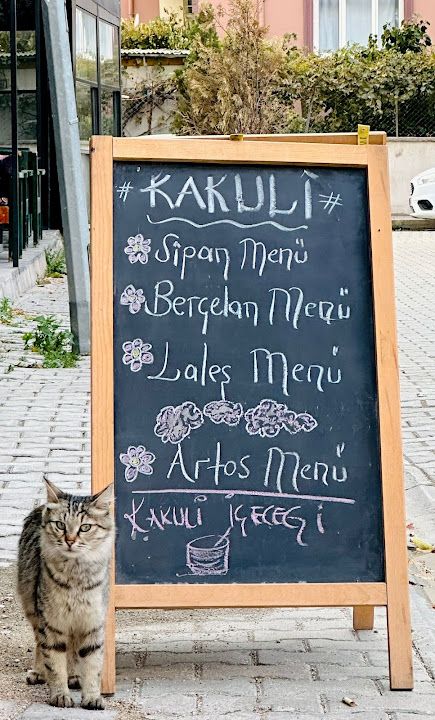 # KAKULİ #
Sîpan Menü
Berçelan Menü
Laleş Menü
Artos Menü
KAKULİ İÇECEĞİ